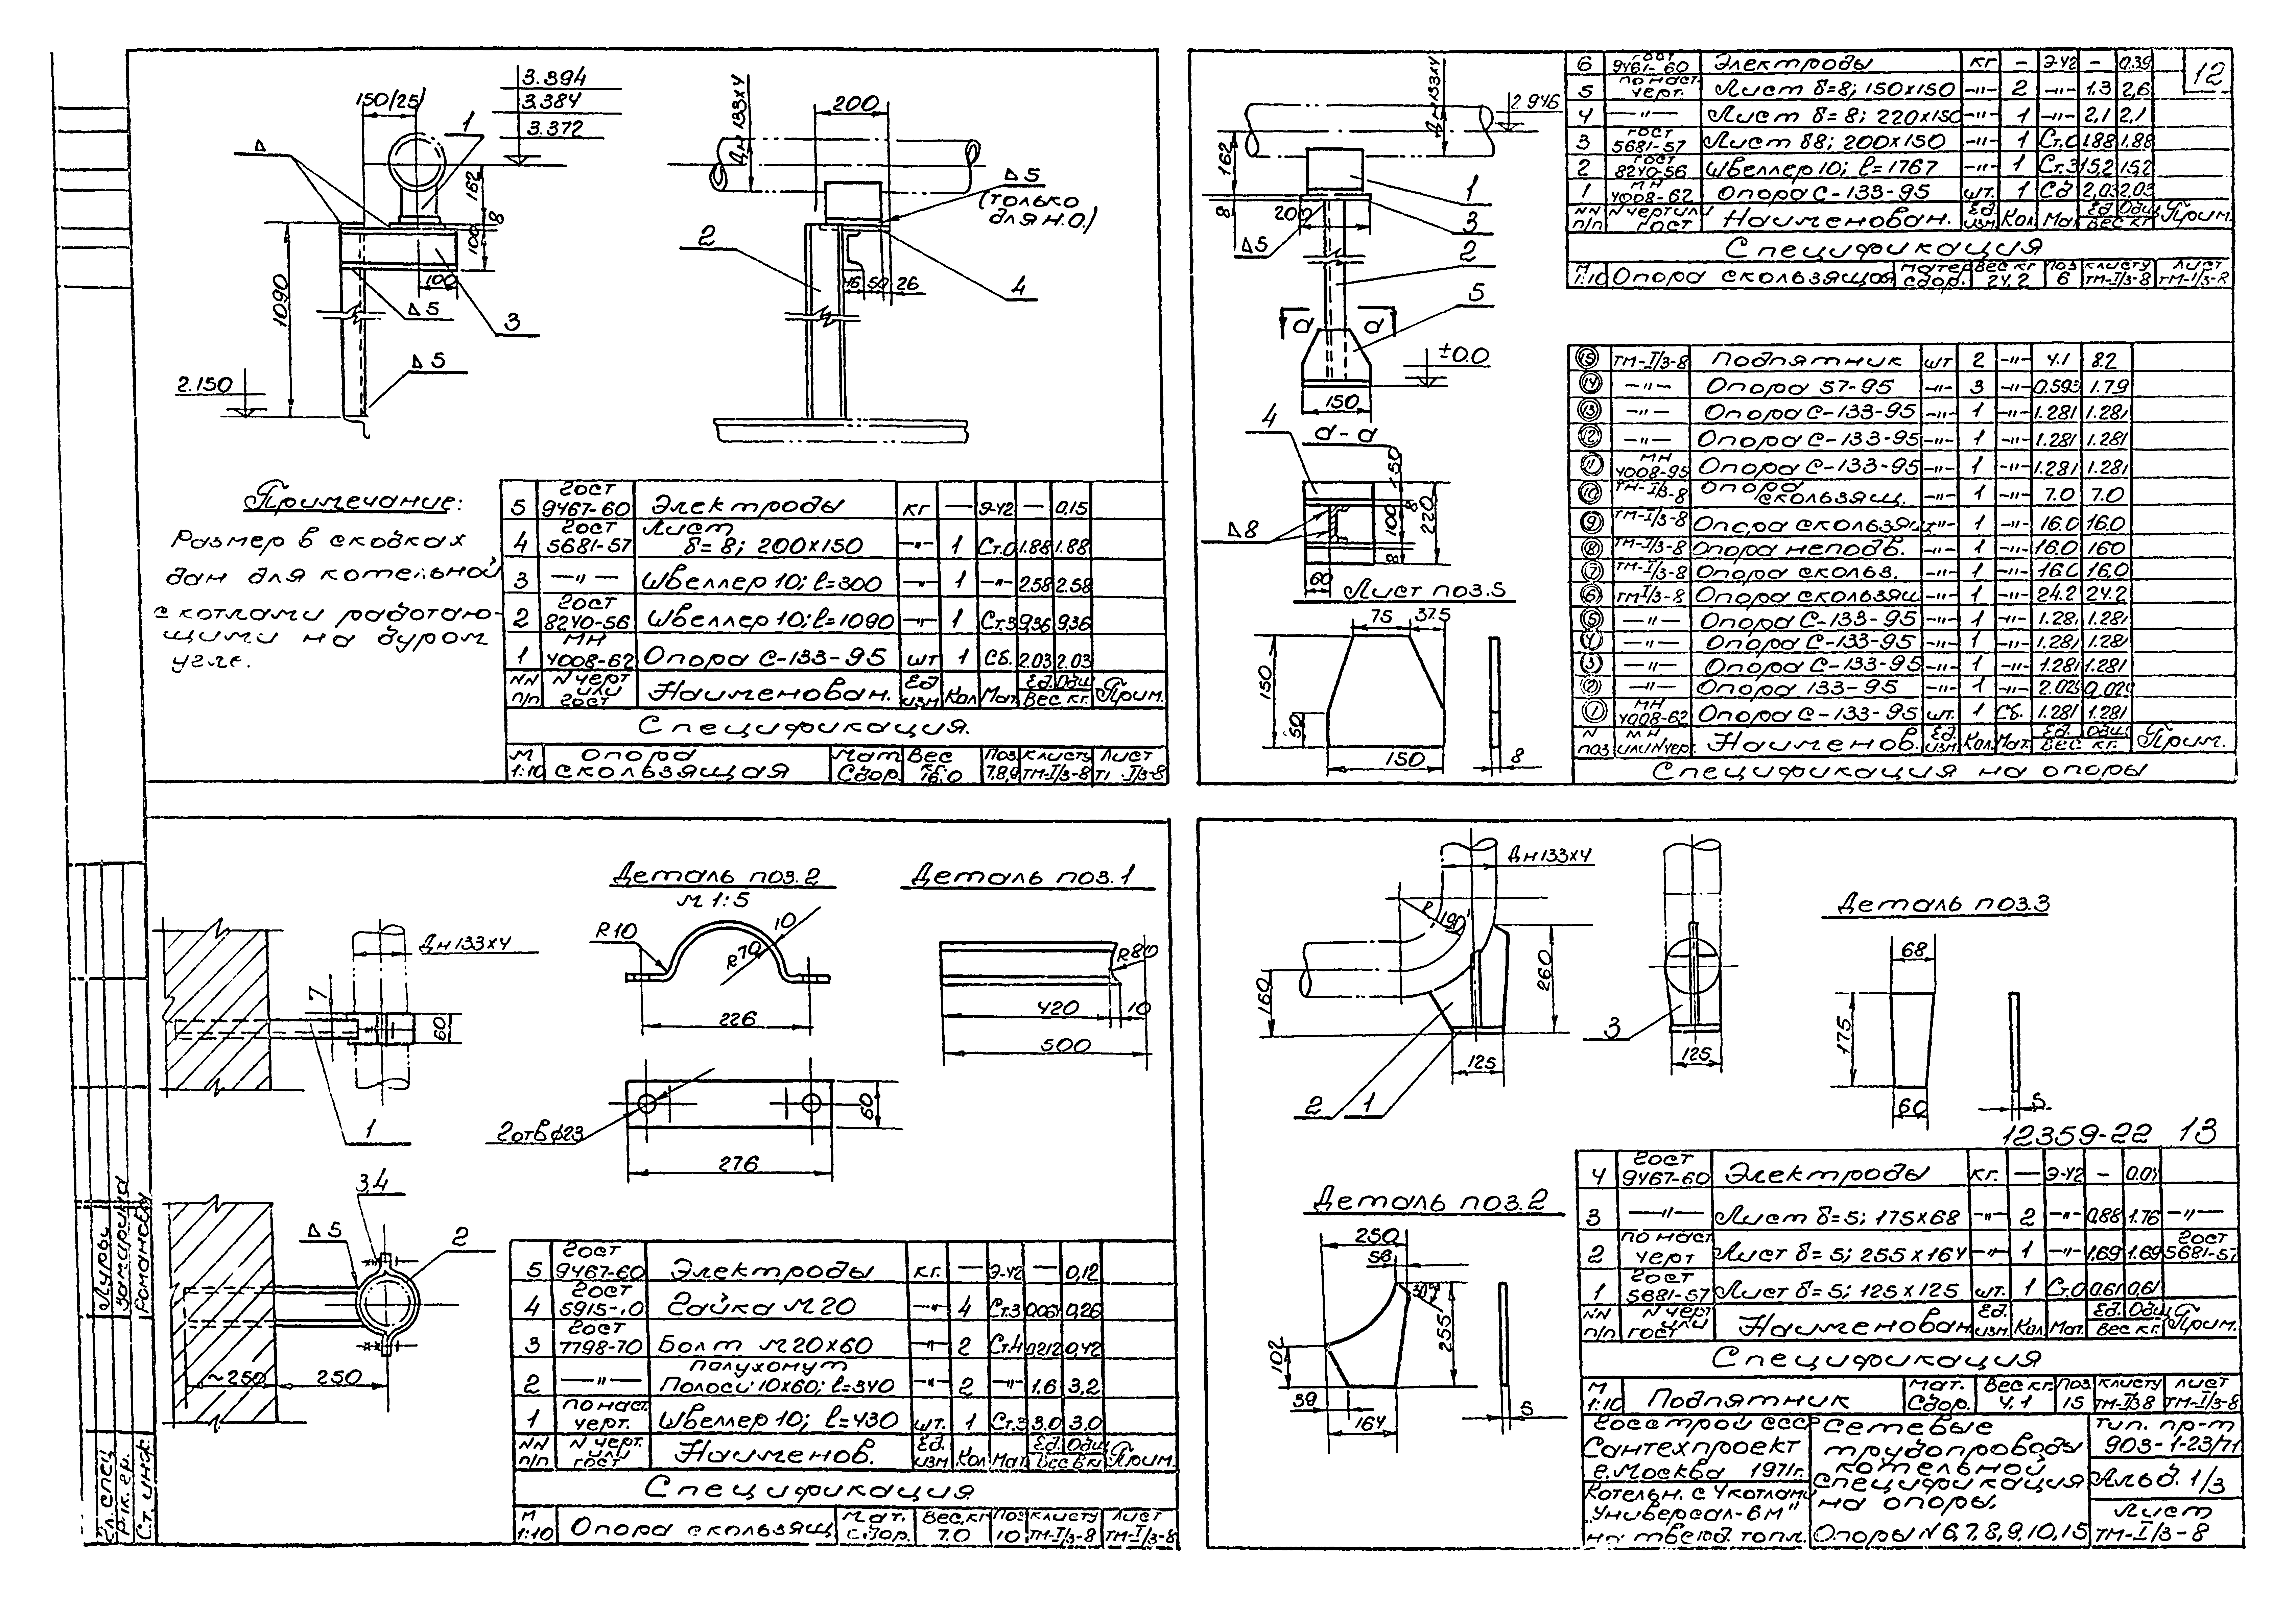 150/25/
1
3.394
3.384
3.372
Δ
162
8
100
1090
100
Δ5
3
Δ5
2.150
200
Дн 133х4
Δ5
(только
для н.о.)
2
46 50 26
4
Примечание:
Размер в скобках
дан для котельной
с котлами работаю-
щими на буром
угле.
5 ГОСТ 9467-60 Электроды кг — Э-42 — 0,15
4 ГОСТ 5681-57 Лист δ=8; 200х150 -"- 1 Ст.0 1.88 1.88
3 —"— Швеллер 10; l=300 -"- 1 -"- 2.58 2.58
2 ГОСТ 8240-56 Швеллер 10; l=1090 -"- 1 Ст.3 9,36 9,36
1 МН 4008-62 Опора С-133-95 шт 1 Сб. 2.03 2.03
NN п/п N черт или гост Наименован. Ед изм Кол Мат. Ед. Общ Вес кг. Прим.
Спецификация.
М 1:10 Опора скользящая Мат Сбор. Вес 16.0 Поз 7,8,9 К листу ТМ-I/3-8 Лист I/3-8
Дн 133х4
2.946
162
8
200
Δ5
1
3
2
5
а а
±0.0
150
4
а-а
150
8
100
220
8
Δ8
60
Лист поз.5
75 37.5
150
50
150
8
6 ГОСТ 9467-60 Электроды кг — Э-42 — 0.39
12
5 по наст. черт. Лист δ=8; 150х150 -"- 2 -"- 1.3 2,6
4 —"— Лист δ=8; 220х150 -"- 1 -"- 2,1 2,1
3 ГОСТ 5681-57 Лист δ8; 200х150 -"- 1 Ст.0 1.88 1.88
2 ГОСТ 8240-56 Швеллер 10; l=1767 -"- 1 Ст.3 15,2 15,2
1 МН 4008-62 Опора С-133-95 шт. 1 Сб 2,03 2.03
NN п/п N черт или гост Наименован. Ед изм. Кол. Мат Ед. Общ Вес кг Прим.
Спецификация
М 1:10 Опора скользящая Матер сбор. Вес кг 24,2 Поз 6 К листу ТМ-I/3-8 Лист ТМ-I/3-8
15 ТМ-I/3-8 Подпятник шт 2 -"- 4.1 8.2
14 —"— Опора 57-95 -"- 3 -"- 0.593 1.79
13 —"— Опора С-133-95 -"- 1 -"- 1.281 1.281
12 —"— Опора С-133-95 -"- 1 -"- 1.281 1.281
11 МН 4008-95 Опора С-133-95 -"- 1 -"- 1.281 1.281
10 ТМ-I/3-8 Опора скользящ. -"- 1 -"- 7.0 7.0
9 ТМ-I/3-8 Опора скользящ. -"- 1 -"- 16.0 16.0
8 ТМ-I/3-8 Опора неподв. -"- 1 -"- 16.0 160
7 ТМ-I/3-8 Опора скольз. -"- 1 -"- 16.0 16,0
6 ТМ-I/3-8 Опора скользящ -"- 1 -"- 24.2 24.2
5 —"— Опора С-133-95 -"- 1 -"- 1.281 1.281
4 —"— Опора С-133-95 -"- 1 -"- 1.281 1.281
3 —"— Опора С-133-95 -"- 1 -"- 1.281 1.281
2 —"— Опора 133-95 -"- 1 -"-
1 МН 4008-62 Опора С-133-95 шт. 1 Сб. 1.281 1.281
N поз МН или N черт. Наименов. Ед. изм Кол. Мат. Ед. Общ Вес кг. Прим.
Спецификация на опоры
Дн 133х4
7
60
1
3,4
Δ5
2
~250 250
Деталь поз.2
М 1:5
R10
10
R70
226
2 отв ф23
60
276
Деталь поз.1
R80
420 10
500
5 ГОСТ 9467-60 Электроды кг. — Э-42 — 0,12
4 ГОСТ Гайка М20 -"- 4 Ст.3 0,061 0,26
3 ГОСТ 7798-70 Болт М20х60 -"- 2 Ст.4 0,212 0,42
2 —"— полухомут Полоса 10х60; l=340 -"- 2 -"- 1.6 3,2
1 по наст. черт. Швеллер 10; l=430 шт. 1 Ст.3 3.0 3.0
NN п/п N черт. или гост Наименов. Ед. изм Кол Мат. Ед. Общ Вес кг Прим.
Спецификация
М 1:10 Опора скользящ Мат. сбор. Вес кг 7.0 Поз 10 К листу ТМ-I/3-8 Лист ТМ-I/3-8
Гл. спец
Рук. гр.
Ст. инж.
Романова
Дн 133х4
R 190
160
260
125
2 1
3
125
Деталь поз.3
68
175
60
5
12359-22 13
Деталь поз.2
250
56
30°
255
102
39
164
5
4 ГОСТ 9467-60 Электроды кг. — Э-42 — 0.04
3 —"— Лист δ=5; 175х68 -"- 2 -"- 0,88 1.76 —"—
2 по наст черт Лист δ=5; 255х164 -"- 1 -"- 1.69 1.69 ГОСТ 5681-57
1 ГОСТ 5681-57 Лист δ=5; 125х125 шт. 1 Ст.0 0,61 0,61
NN п/п N черт или гост Наименован Ед. изм. Кол. Мат. Ед. Общ Вес кг. Прим.
Спецификация
М 1:10 Подпятник Мат. Сбор. Вес кг. 4.1 Поз 15 К листу ТМ-I/3-8 Лист ТМ-I/3-8
Госстрой СССР
Сантехпроект
г. Москва 1971г.
Котельн. с 4 котлами
"Универсал-6м"
на тверд. топл.
Сетевые
трубопроводы
котельной
спецификация
на опоры.
Опоры N 6,7,8,9,10,15
Тип. пр-т
903-1-23/71
Альб. 1/3
Лист
ТМ-I/3-8